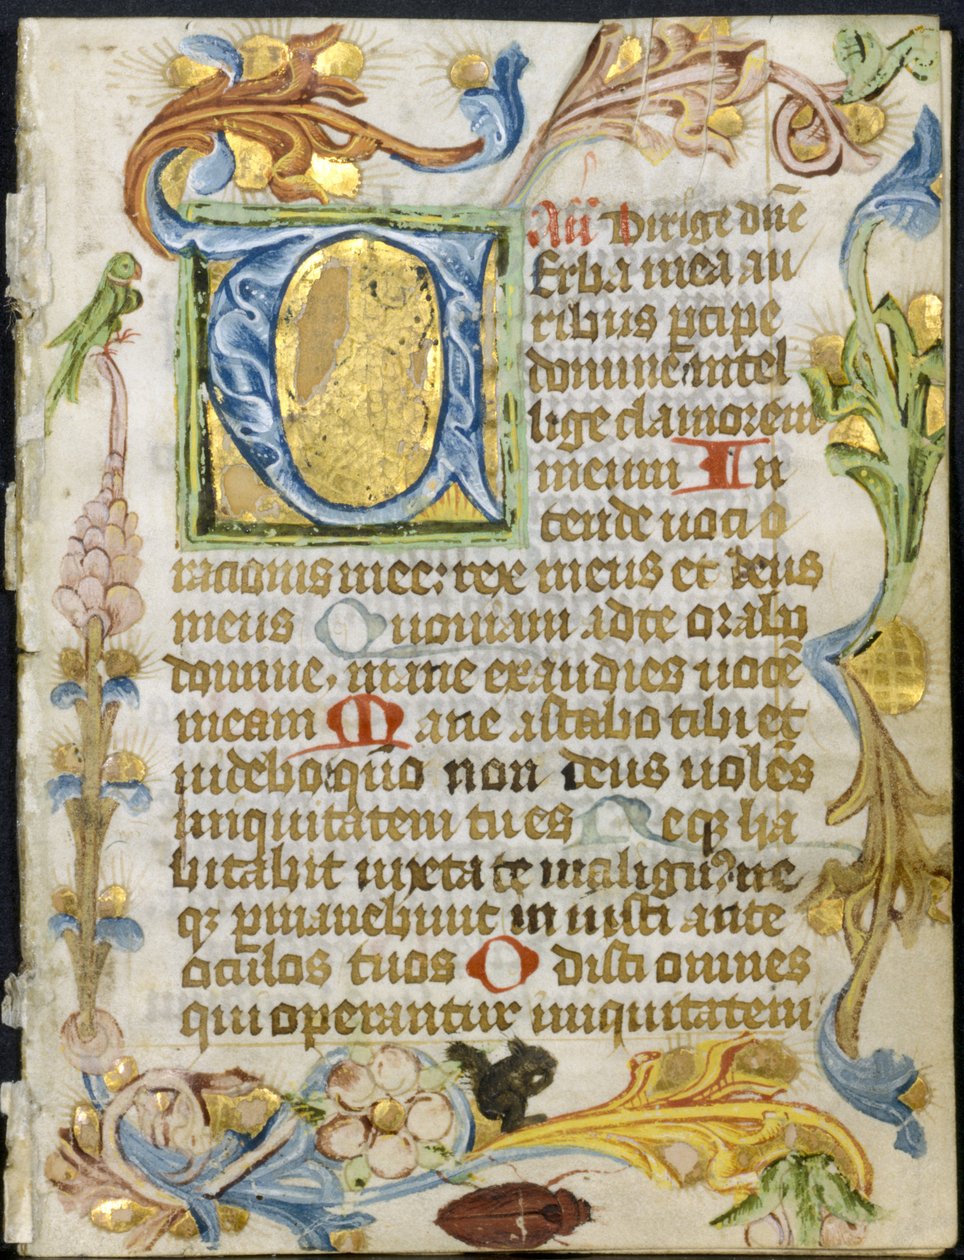 Añ Dirige dñe
V Erba mea au
ribus ꝑcipe
domine intel
lige clamorem
meum In
tende uoci o
racionis mee: rex meus et deus
meus Quoniam ad te orabo
domine, mane exaudies uocē
meam Mane astabo tibi et
uidebo: qm̄ non deus uolēs
iniquitatem tu es Neqꝫ ha
bitabit iuxta te malignꝰ: ne
qꝫ ꝑmanebunt iniusti ante
oculos tuos Odisti omnes
qui operantur iniquitatem